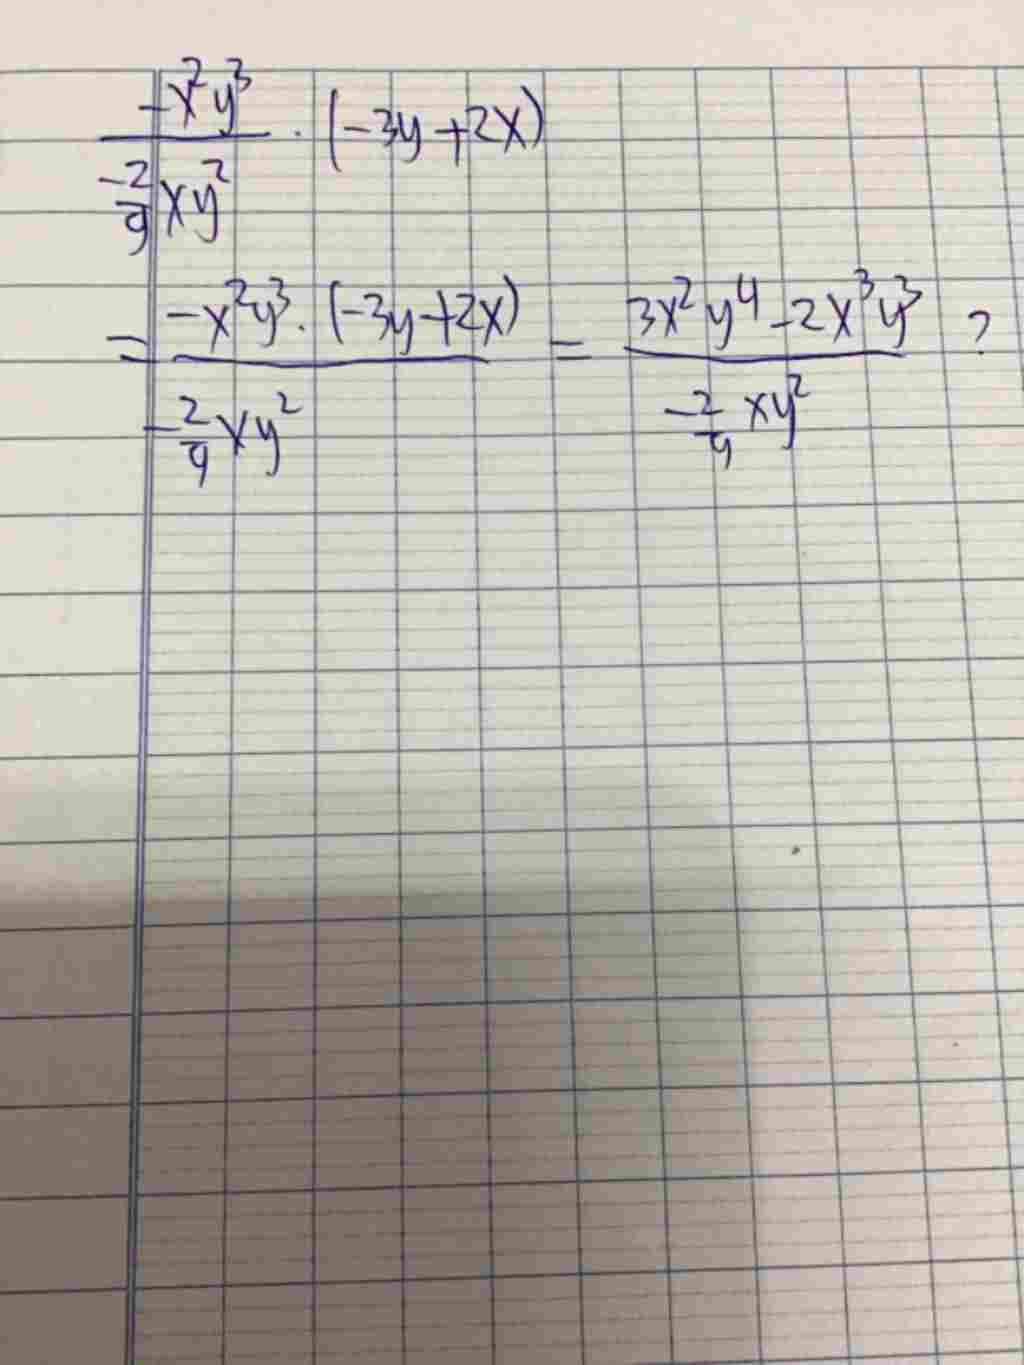 \frac{-x^2y^3}{\frac{-2}{9}xy^2} \cdot (-3y+2x)
= \frac{-x^2y^3 \cdot (-3y+2x)}{-\frac{2}{9}xy^2} = \frac{3x^2y^4-2x^3y^3}{-\frac{2}{9}xy^2} ?